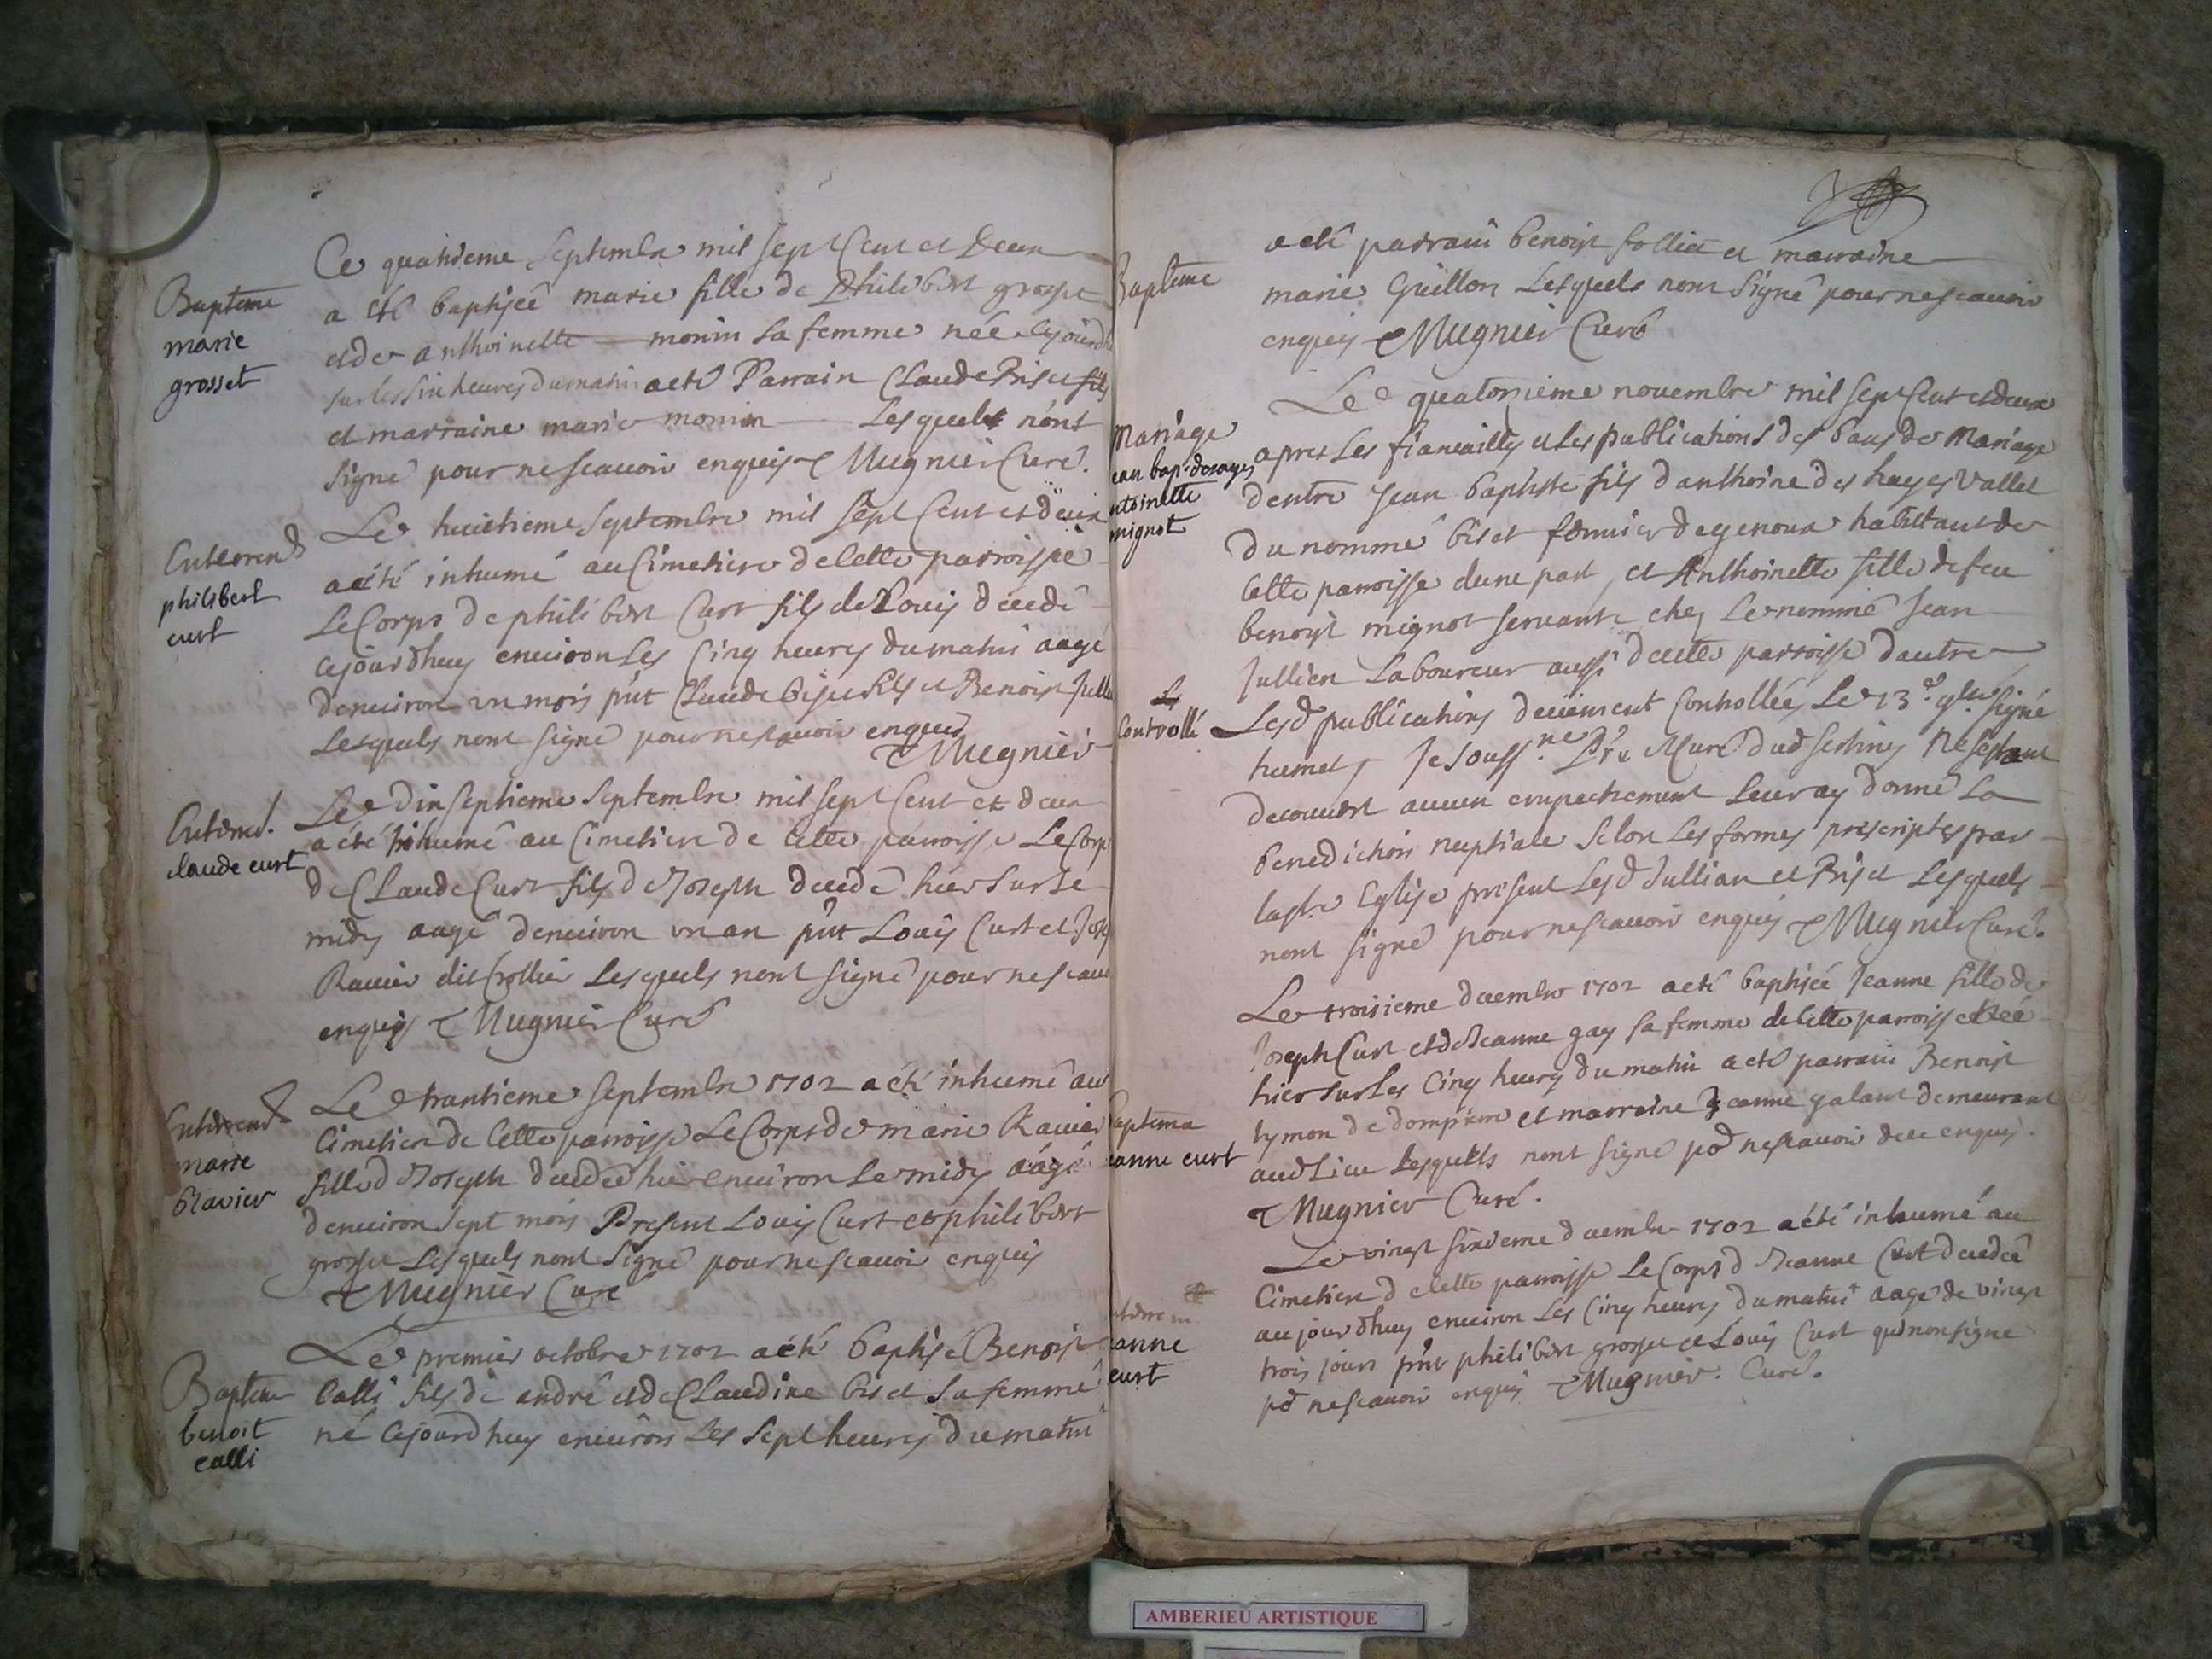 Bapteme
marie
grosset
Ce quatrieme Septembre mil sept Cent et Deux
a été baptisée marie fille de Philibert grosset
et de anthoinette monin sa femme née cejourd'h
sur les six heures du matin a eté Parrain Claude Biset fils
et marraine marie monin Lesquels n'ont
signé pour ne scavoir enquis Mugnier Curé.
Enterrem
philibert
curt
Le huictieme Septembre mil sept Cent et deux
a été inhumé au Cimetiere de Cette parroisse
Le Corps de philibert Curt fils de Louis decedé
cejourdhuy environ Les Cinq heures du matin aagé
denviron un mois pnt Claude biset fils et Benoist Jull
Lesquels nont signé pour ne scavoir enquis
Mugnier
Enterred.
claude curt
Le dixseptieme Septembre mil sept Cent et deux
a été inhumé au Cimetiere de Cette parroisse Le Corp
de Claude Curt fils de Joseph decedé hier sur le
midy aagé denviron un an pnt Louis Curt et Jose
Ravier dit Crollier Lesquels nont signé pour ne scavo
enquis Mugnier Curé
Enterrem
marie
Ravier
Le trantieme Septembre 1702 a été inhumé au
Cimetiere de Cette parroisse Le Corps de marie Ravier
fille d Joseph decedee hier environ Le midy aagé
denviron sept mois Present Louis Curt et philibert
grosset Lesquels nont signé pour ne scavoir enquis
Mugnier Curé
Baptem
benoit
calli
Le premier octobre 1702 a été baptisé Benoist
Calli fils de andré et de Claudine biset sa femme
né Cejourdhuy environ Les sept heures du matin
Bapteme
a eté parrain benoist folliet et marraine
marie Guillon Lesquels nont Signé pour ne scavoir
enquis Mugnier Curé
Mariage
ean bap. desayes
ntoinette
mignot
Le quatorzieme novembre mil sept Cent et deux
apres Les fiancailles et Les publications des bans de Mariage
dentre Jean baptiste fils danthoine des hayes Vallet
du nommé biset fermier de genoux habitant de
Cette parroisse dune part, et Anthoinette fille de feu
benoist mignot servante chez Le nommé Jean
Jullien Laboureur aussi de cette parroisse dautre
Controllé
Lesd publications deüement Controllées Le 13.e 9bre Signé
humet, Je souss.né Pre Curé dud Serbiny ne sestant
decouvert aucun empechement Leur ay donné La
benediction nuptiale Selon Les formes prescriptes par
lastre Eglise present Lesd Jullian et Biset Lesquels
nont signé pour ne scavoir enquis Mugnier Curé.
aptema
eanne curt
Le troisieme decembre 1702 a eté baptisée Jeanne fille de
Joseph Curt et de Jeanne gay sa femme de Cette parroisse Née
hier sur Les Cinq heures du matin a eté parrain Benoist
tymon de dompierre et marraine Jeanne galant demeurant
aud Lieu Lesquels nont signé pr ne scavoir de ce enquis.
Mugnier Curé.
nterrem
eanne
curt
Le vingt sixieme decembre 1702 a été inhumé au
Cimetiere de Cette parroisse Le Corps d Jeanne Curt decedée
aujourdhuy environ Les Cinq heures du matin aagé de vingt
trois jours pnt philibert grosset et Louis Curt qui non signe
pr ne scavoir enquis Mugnier. Curé.
AMBERIEU ARTISTIQUE